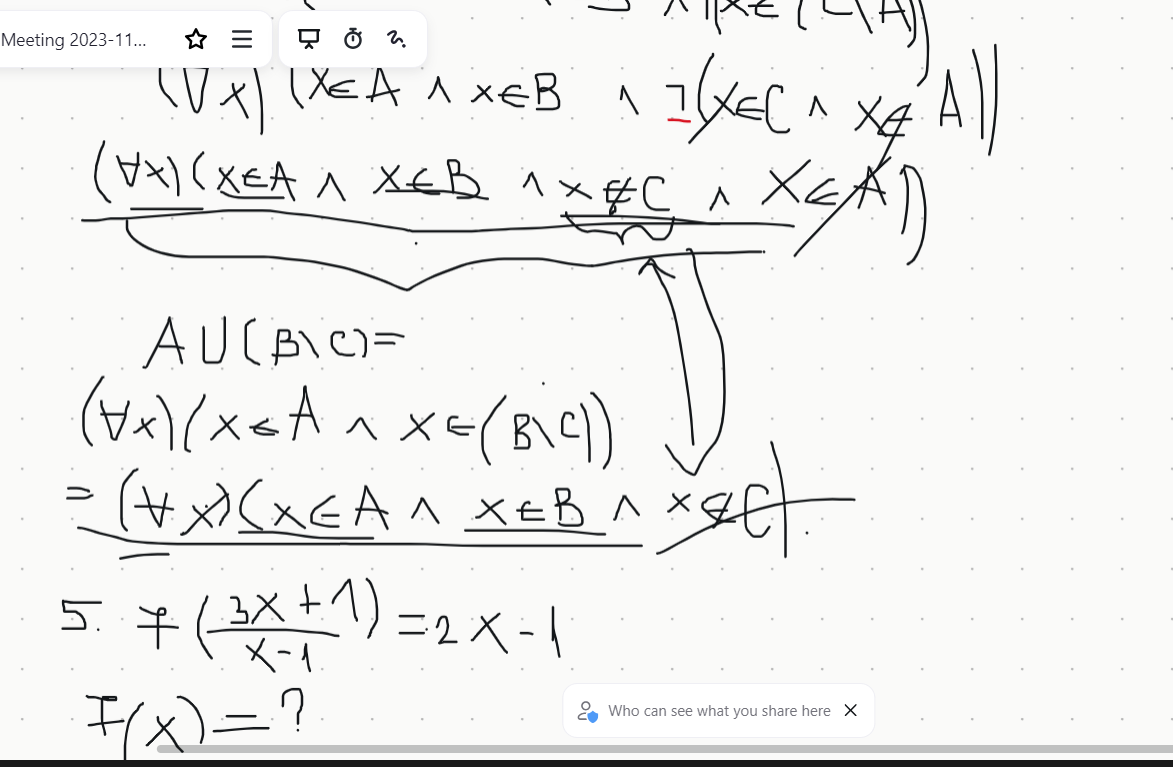 ∧ (x∈(C\A))
Meeting 2023-11...
(∀x)(x∈A ∧ x∈B ∧ ¬(x∈C ∧ x∉A))
(∀x)(x∈A ∧ x∈B ∧ x∉C ∧ x∈A))
A∪(B\C)=
(∀x)(x∈A ∧ x∈(B\C))
= (∀x)(x∈A ∧ x∈B ∧ x∉C).
5. f(3x+1/x-1)=2x-1
f(x)=?
Who can see what you share here